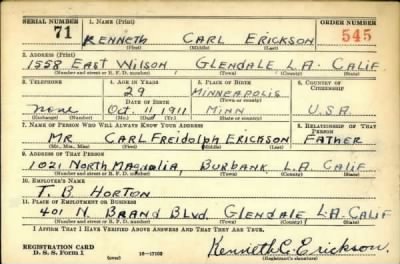 SERIAL NUMBER 1. NAME (Print) ORDER NUMBER
71 KENNETH CARL ERICKSON 545
(First) (Middle) (Last)
2. ADDRESS (Print)
1558 EAST WILSON, GLENDALE L.A. CALIF
(Number and street or R. F. D. number) (Town) (County) (State)
3. TELEPHONE 4. AGE IN YEARS 5. PLACE OF BIRTH 6. COUNTRY OF CITIZENSHIP
29 MINNEAPOLIS
DATE OF BIRTH (Town or county)
none Oct. 11 1911 MINN U.S.A.
(Exchange) (Number) (Mo.) (Day) (Yr.) (State or country)
7. NAME OF PERSON WHO WILL ALWAYS KNOW YOUR ADDRESS 8. RELATIONSHIP OF THAT PERSON
MR CARL FREIDOLPH ERICKSON FATHER
(Mr., Mrs., Miss) (First) (Middle) (Last)
9. ADDRESS OF THAT PERSON
1021 NORTH MAGNOLIA, BURBANK, L.A. CALIF
(Number and street or R. F. D. number) (Town) (County) (State)
10. EMPLOYER'S NAME
T. B. HORTON
11. PLACE OF EMPLOYMENT OR BUSINESS
401 N. BRAND BLVD. GLENDALE L.A. CALIF
(Number and street or R. F. D. number) (Town) (County) (State)
I AFFIRM THAT I HAVE VERIFIED ABOVE ANSWERS AND THAT THEY ARE TRUE.
REGISTRATION CARD
D. S. S. Form 1 (over) Kenneth C. Erickson
(Registrant's signature)